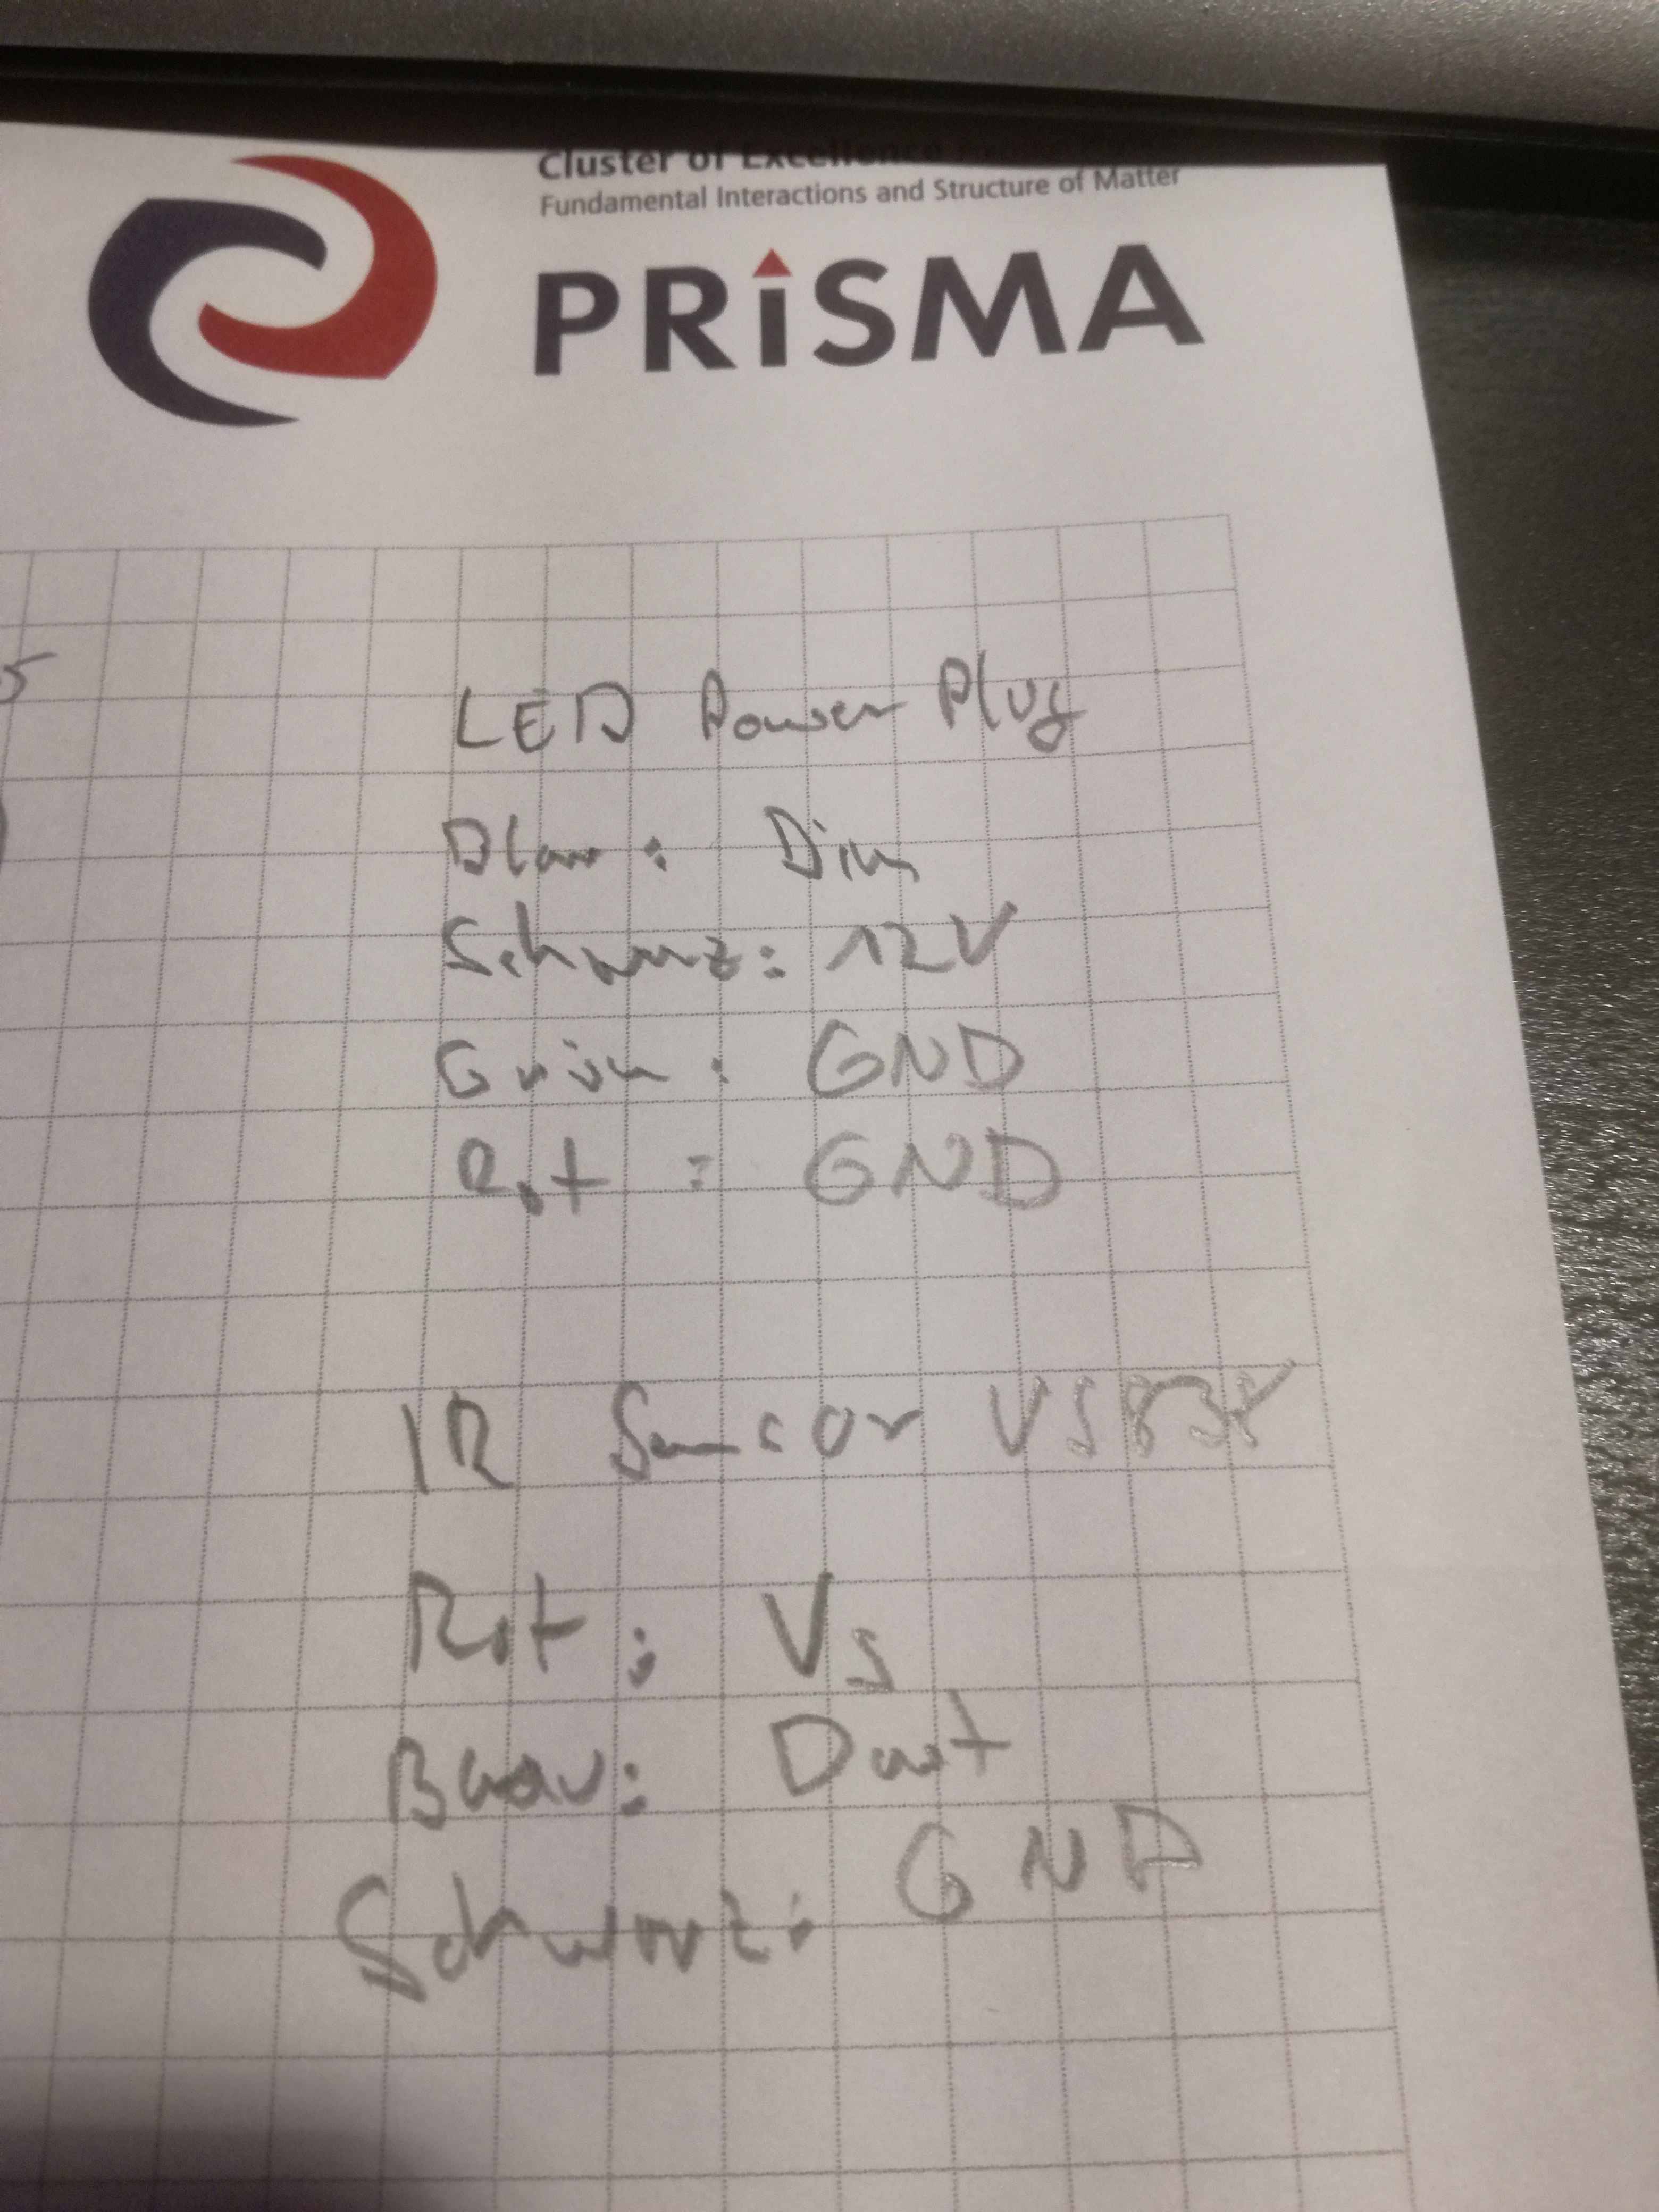 Cluster of Excellence
Fundamental Interactions and Structure of Matter
PRiSMA
5
LED Power Plug
Blau: Dim
Schwarz: 12V
Grün: GND
Rot: GND
IR Sensor VS838
Rot: Vs
Blau: Dout
Schwarz: GND